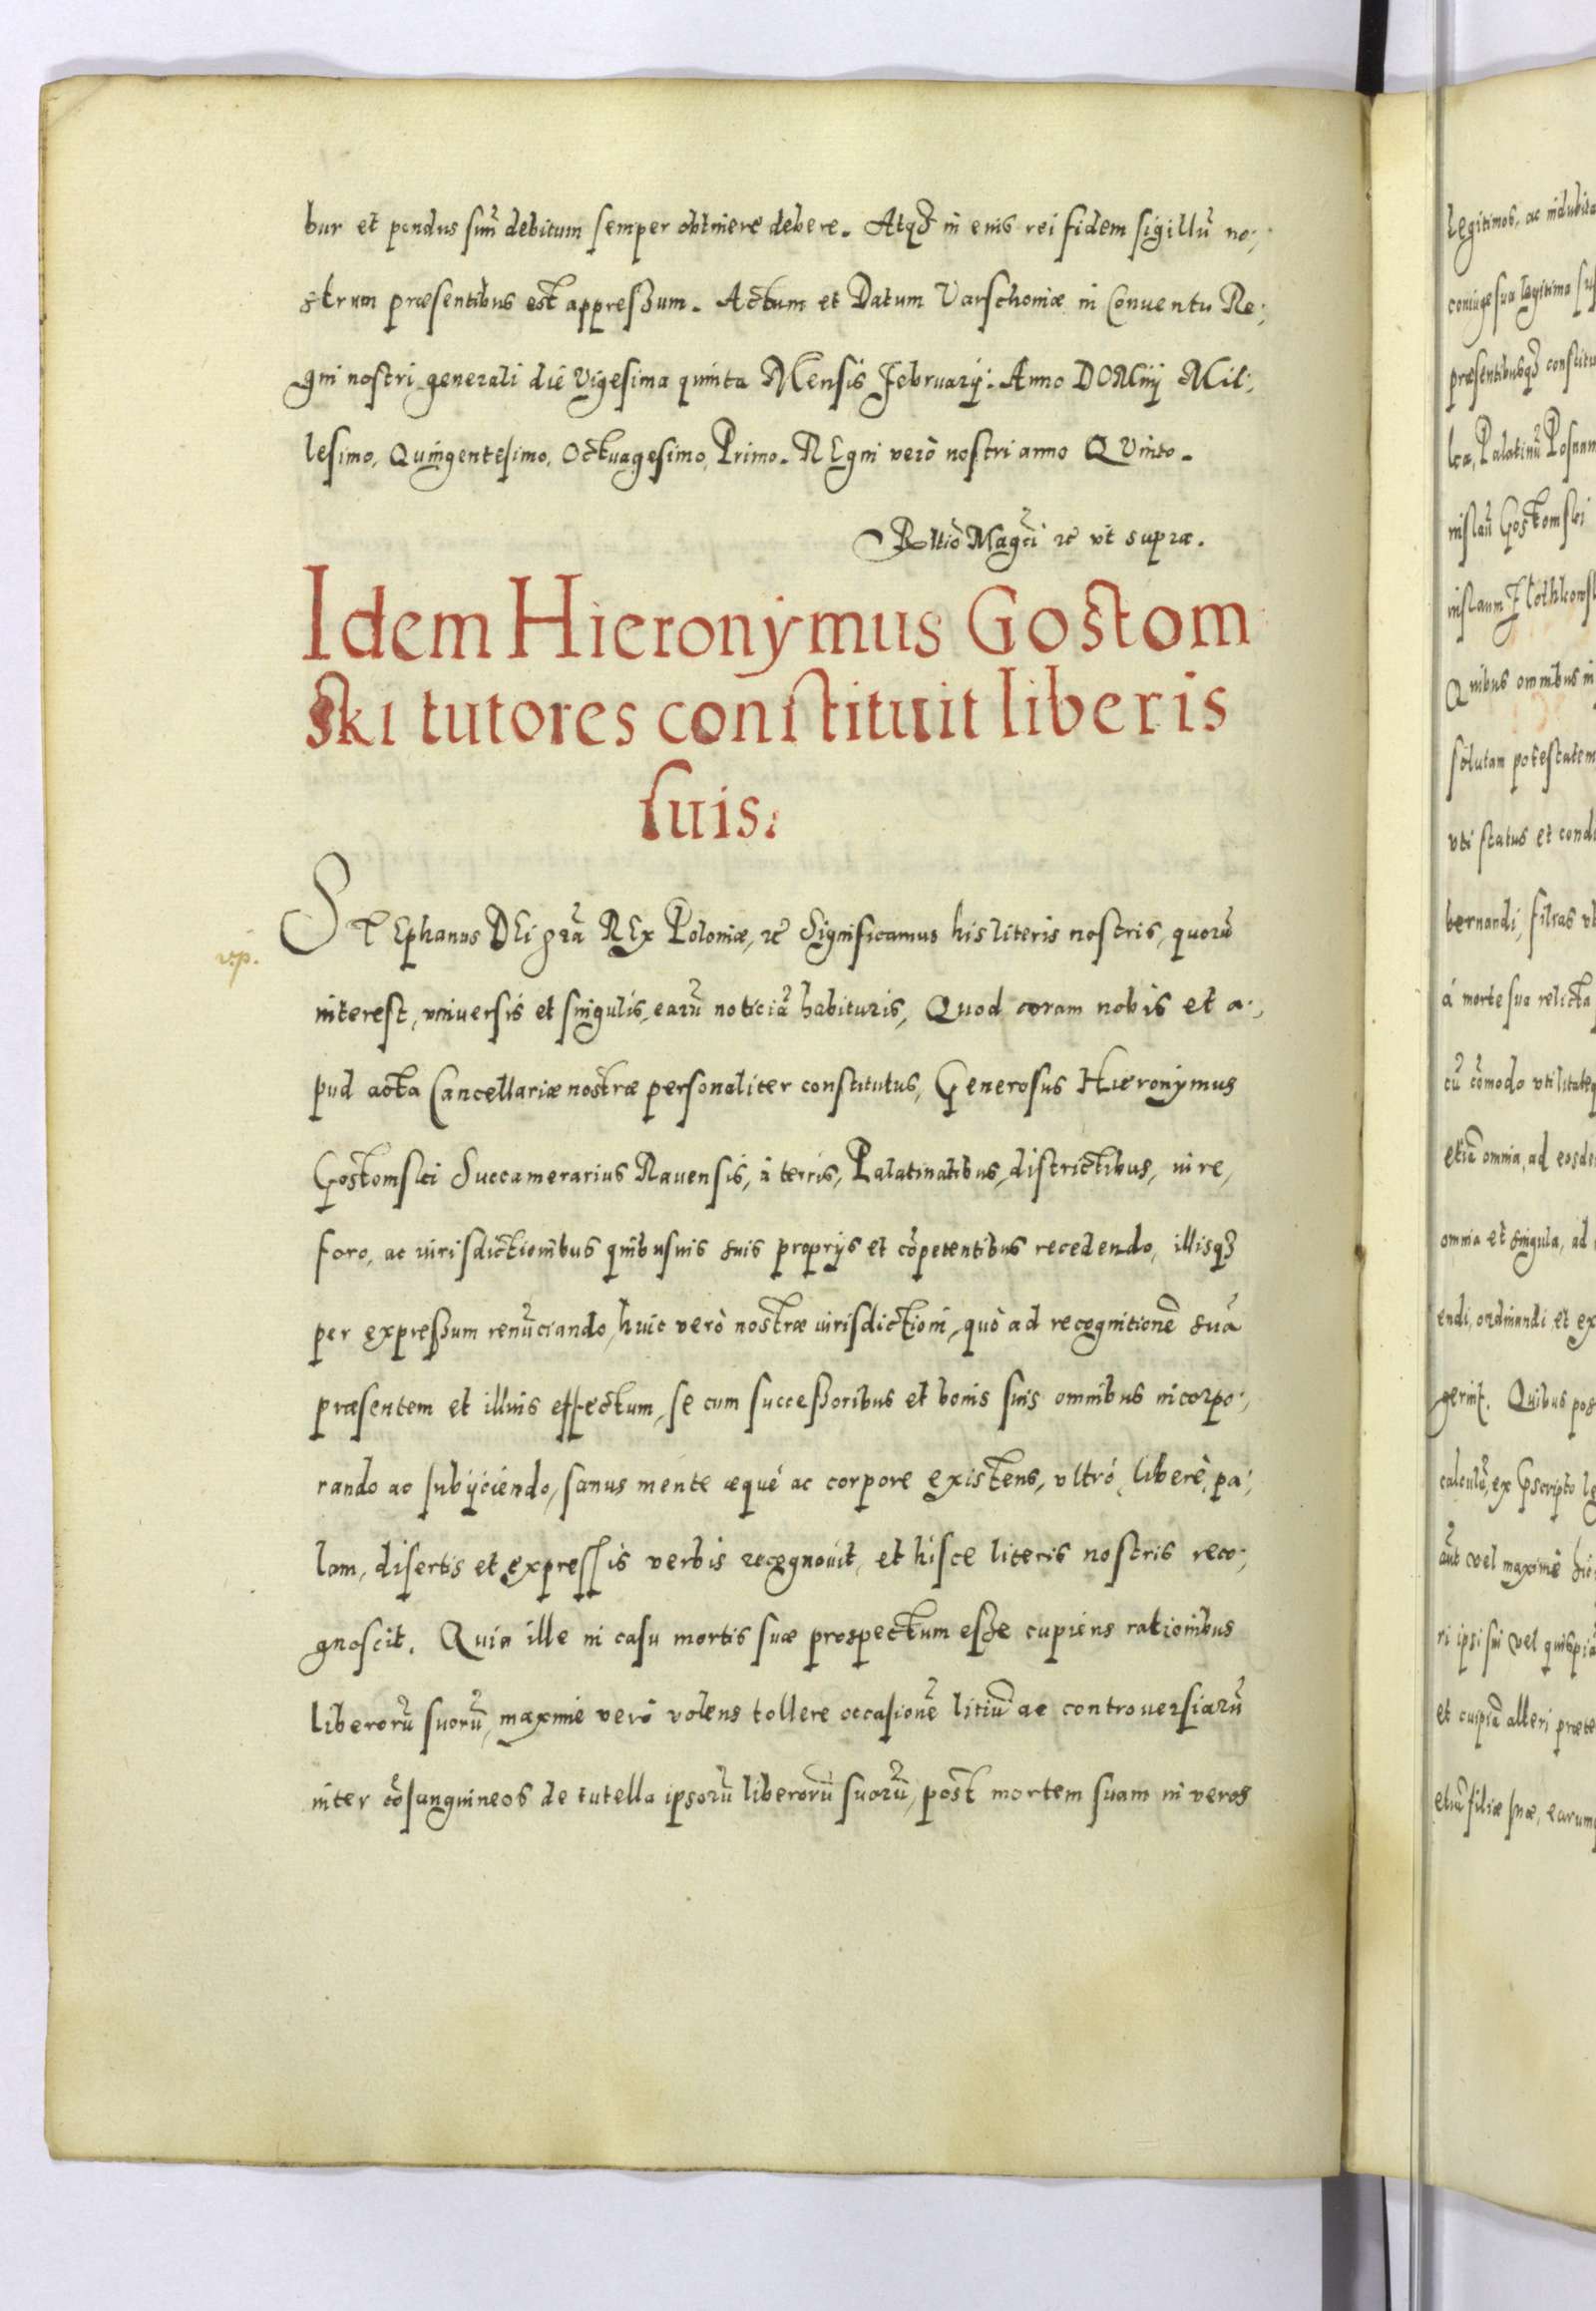 bur et pondus suũ debitum semper obtinere debere. Atqꝫ in eius rei fidem sigillũ no:
strum præsentibus est appressum. Actum et Datum Varschoviæ in Conuentu Re:
gni nostri generali die Vigesima quinta Mensis Februarij. Anno DOMinj Mil:
lesimo, Quingentesimo, Octuagesimo, Primo. REgni verò nostri anno QVinto.
Rltiõ Magci ꝛc vt supra.
Idem Hieronymus Gostom
ski tutores constituit liberis
suis.
STEphanus DEi gra REx Poloniæ, ꝛc Significamus his literis nostris, quorũ
v.p.
interest, vniuersis et singulis, earũ noticiã habituris, Quod coram nobis et a:
pud acta Cancellariæ nostræ personaliter constitutus, Generosus Hieronymus
Gostomski Succamerarius Rauensis, à terris, Palatinatibus, districtibus, iure,
foro, ac iurisdictionibus quibusuis suis proprijs et cõpetentibus recedendo, illisqꝫ
per expressum renũciando, huic verò nostræ iurisdictioni, quò ad recognitionẽ suã
præsentem et illius effectum, se cum successoribus et bonis suis omnibus incorpo:
rando ac subijciendo, sanus mente æquè ac corpore existens, vltrò, liberè, pa:
lam, disertis et expressis verbis recognouit, et hisce literis nostris reco:
gnoscit. Quia ille in casu mortis suæ prospectum esse cupiens rationibus
liberorũ suorũ, maximè verò volens tollere occasionẽ litiũ ac controuersiarũ
inter cõsanguineos de tutella ipsorũ liberorũ suorũ, post mortem suam in veros
legitimos, ac indubita
coniuge sua legitima
præsentibusqꝫ constitu
Palatinũ Posnan
Gostomski
Quibus omnibus
solutam potestatem
vti status et condi
bernandi, filias
à morte sua relicta
cũ cõmodo vtilitateq
etiã omnia, ad eosde
omnia et singula, ad
endi, ordinandi, et ex
gerint. Quibus pos
aũt vel maximè
ri ipsi sui vel quispiã
et cuipiã alteri præte
etiã filiæ suæ, earum